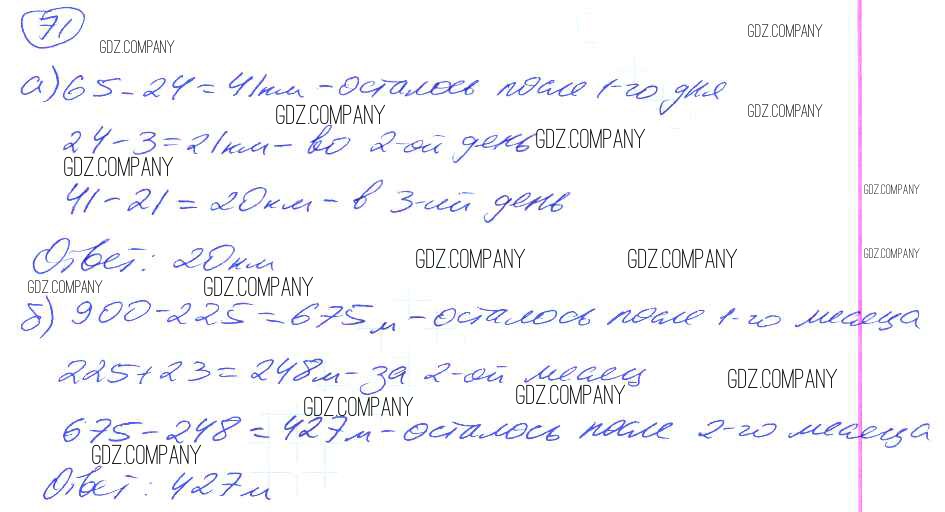 71
GDZ.COMPANY
GDZ.COMPANY
а) 65-24=41км-осталось после 1-го дня
GDZ.COMPANY
GDZ.COMPANY
24-3=21км-во 2-ой день
GDZ.COMPANY
GDZ.COMPANY
41-21=20км-в 3-ий день
GDZ.COMPANY
Ответ: 20км
GDZ.COMPANY
GDZ.COMPANY
GDZ.COMPANY
GDZ.COMPANY
GDZ.COMPANY
б) 900-225=675м-осталось после 1-го месяца
225+23=248м-за 2-ой месяц
GDZ.COMPANY
GDZ.COMPANY
GDZ.COMPANY
675-248=427м-осталось после 2-го месяца
GDZ.COMPANY
Ответ: 427м